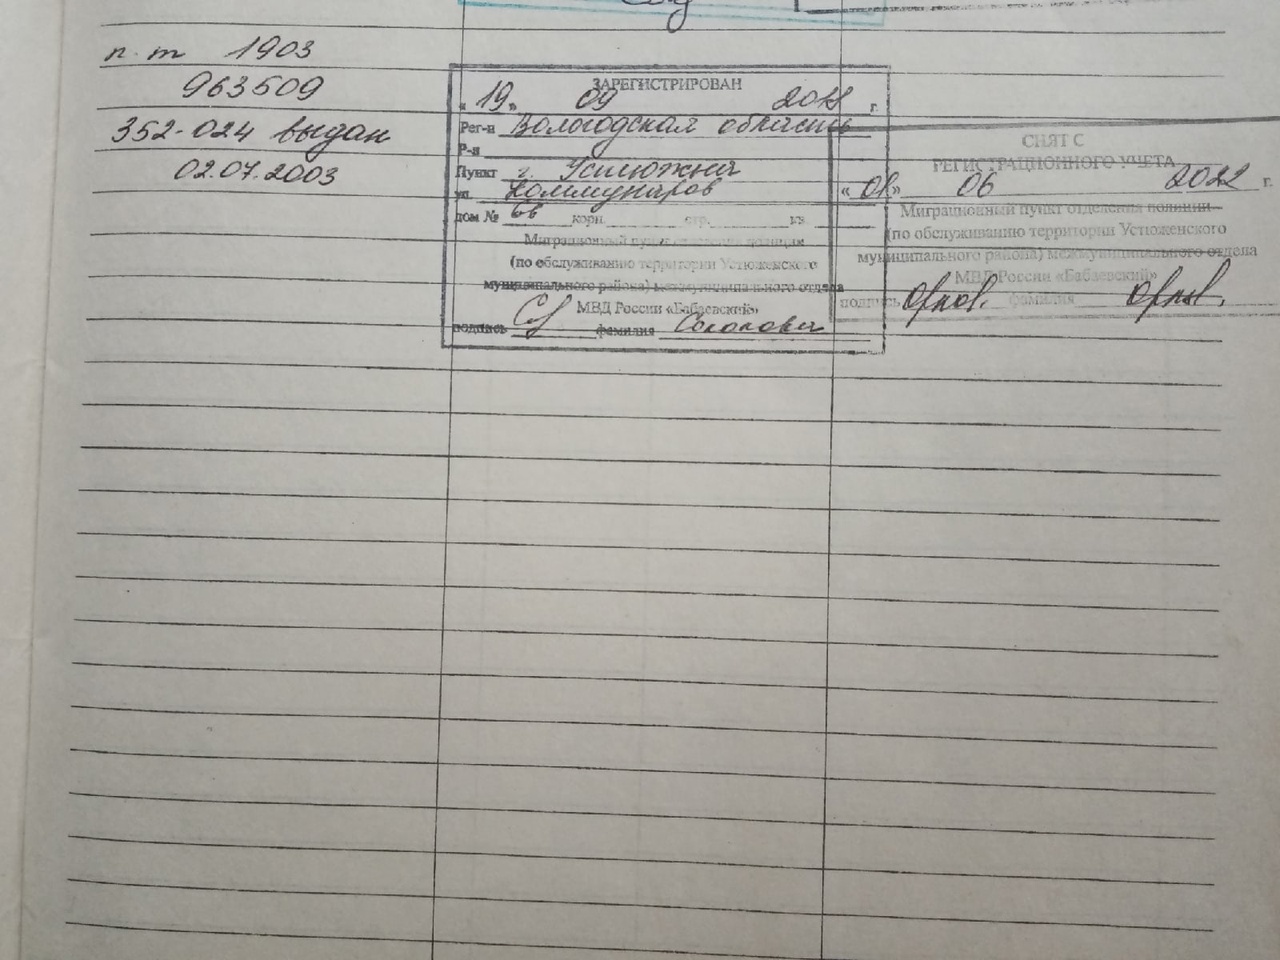 п-т 1903
963509
352-024 выдан
02.07.2003
ЗАРЕГИСТРИРОВАН
« 19 » 09 2018 г.
Рег-н Вологодская область
Р-н
Пункт г. Устюжна
ул. Коммунаров
дом № 66 корп. стр. кв.
Миграционный пункт отделения полиции
(по обслуживанию территории Устюженского
муниципального района) межмуниципального отдела
МВД России «Бабаевский»
подпись фамилия
СНЯТ С
РЕГИСТРАЦИОННОГО УЧЕТА
« 01 » 06 2022 г.
Миграционный пункт отделения полиции
(по обслуживанию территории Устюженского
муниципального района) межмуниципального отдела
МВД России «Бабаевский»
подпись фамилия